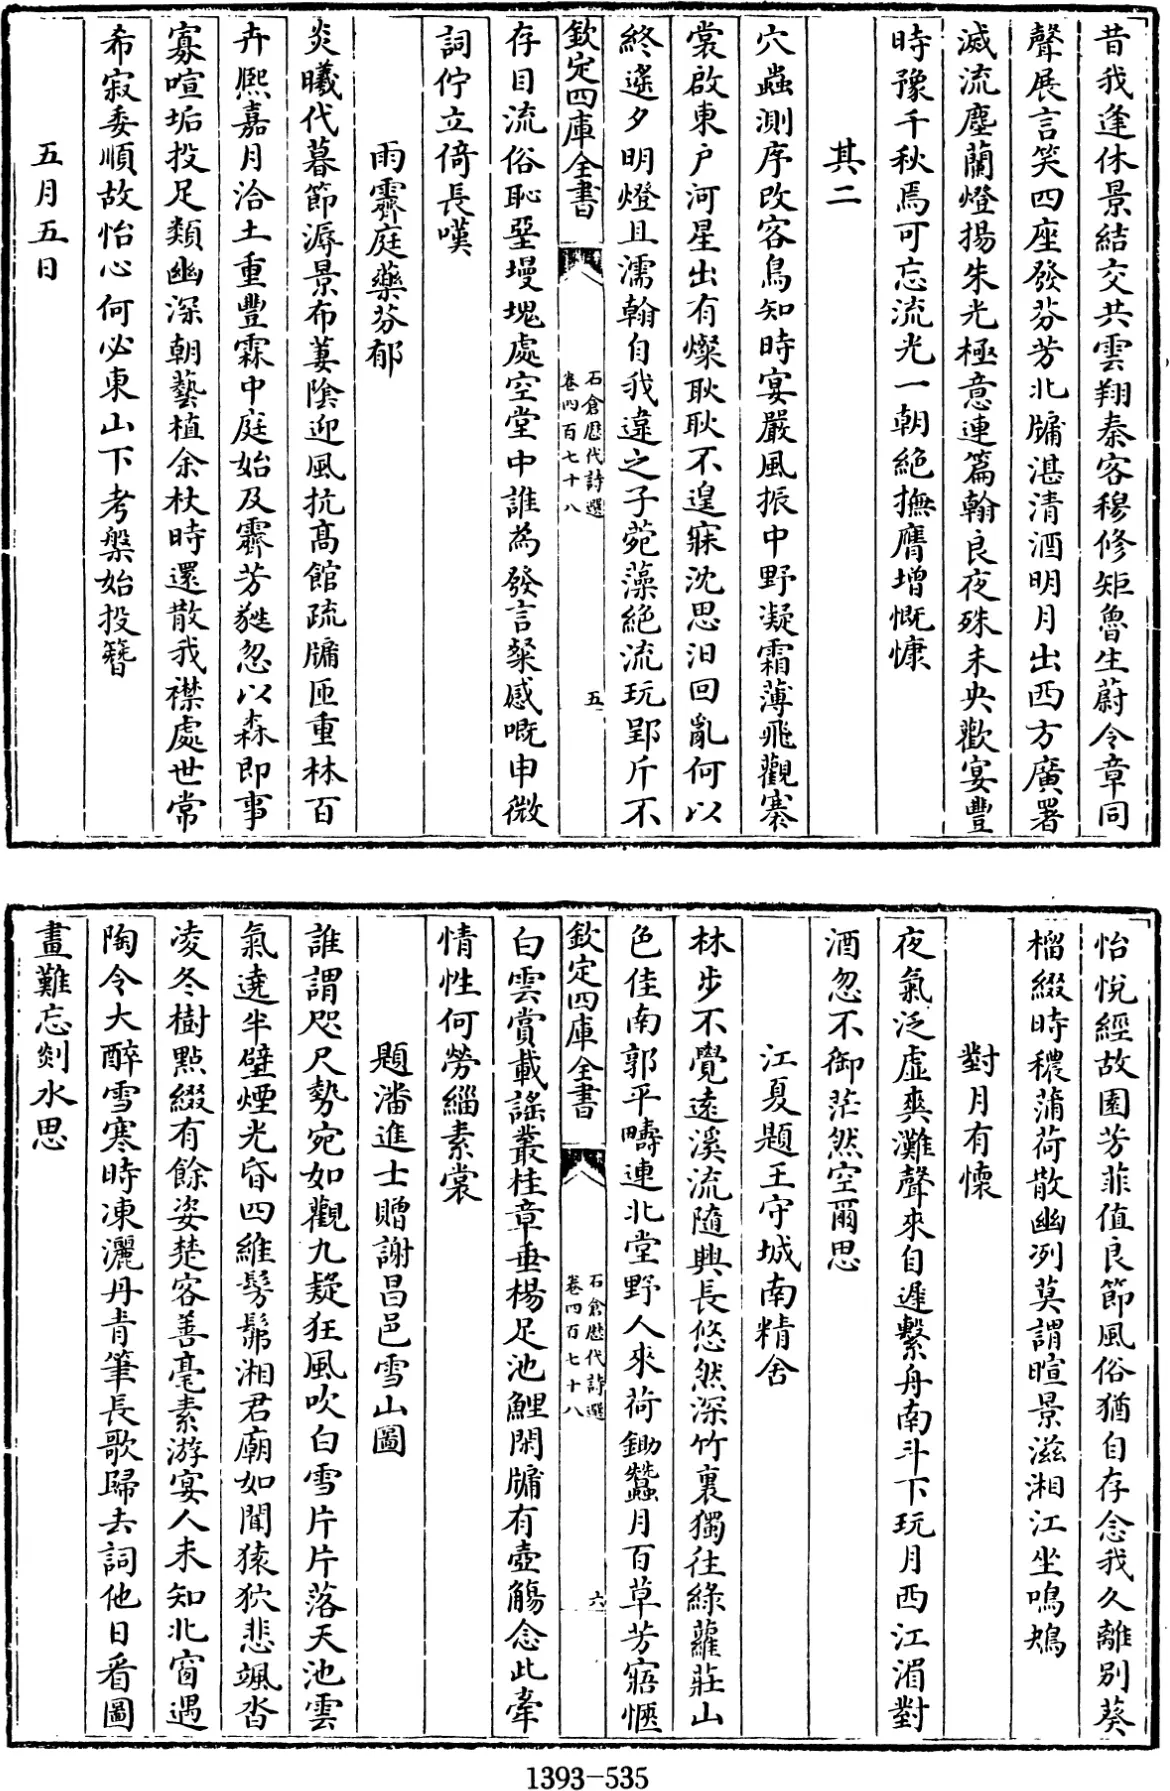 昔我逢休景結交共雲翔秦客穆修矩魯生蔚令章同
聲展言笑四座發芬芳北牗湛清酒明月出西方廣署
滅流塵蘭燈揚朱光極意連篇翰良夜殊未央歡宴豐
時豫千秋焉可忘流光一朝絶撫膺增慨慷
其二
穴蟲測序改客鳥知時宴嚴風振中野凝霜薄飛觀褰
裳啟東户河星出有燦耿耿不遑寐沈思汨回亂何以
終遙夕明燈且濡翰自我違之子菀藻絶流玩郢斤不
欽定四庫全書
石倉歷代詩選
卷四百七十八
五
存目流俗恥堊墁塊處空堂中誰為發言粲感嘅申微
詞佇立倚長嘆
雨霽庭藥芬郁
炎曦代暮節溽景布萋陰迎風抗高館疏牗匝重林百
卉熙嘉月洽土重豐霖中庭始及霽芳蕤忽以森即事
寡喧垢投足類幽深朝藝植余杖時還散我襟處世常
希寂委順故怡心何必東山下考槃始投簪
五月五日
怡悅經故園芳菲值良節風俗猶自存念我久離別葵
榴綴時穠蒲荷散幽冽莫謂暄景滋湘江坐鳴鴂
對月有懷
夜氣泛虛爽灘聲來自遲繫舟南斗下玩月西江湄對
酒忽不御茫然空爾思
江夏題王守城南精舍
林步不覺遠溪流隨興長悠然深竹裏獨往綠蘿莊山
色佳南郭平疇連北堂野人來荷鋤蠶月百草芳寤愜
欽定四庫全書
石倉歷代詩選
卷四百七十八
六
白雲賞載謠叢桂章垂楊足池鯉閑牗有壺觴念此牽
情性何勞緇素裳
題潘進士贈謝昌邑雪山圖
誰謂咫尺勢宛如觀九疑狂風吹白雪片片落天池雲
氣遶半壁煙光昏四維髣髴湘君廟如聞猿狖悲颯沓
凌冬樹點綴有餘姿楚客善毫素游宴人未知北窗遇
陶令大醉雪寒時凍灑丹青筆長歌歸去詞他日看圖
畫難忘剡水思
1393-535